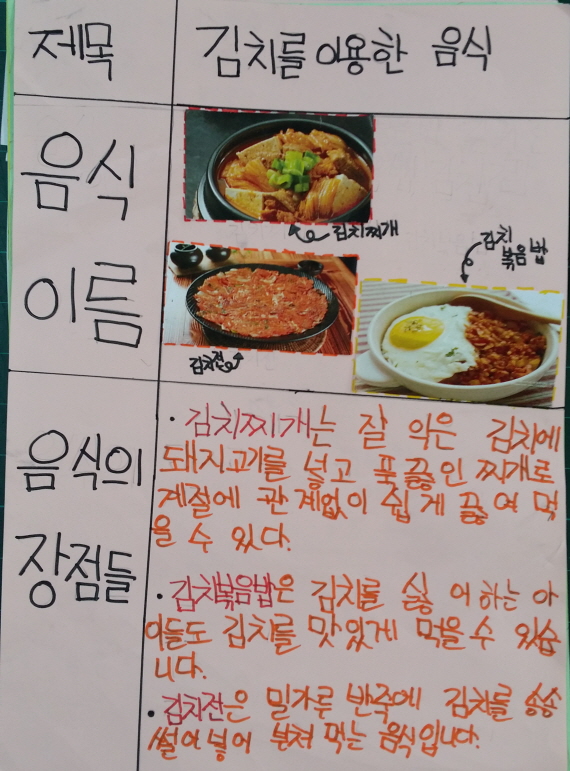 제목
김치를 이용한 음식
음식
이름
김치찌개
김치
볶음밥
김치전
음식의
장점들
· 김치찌개는 잘 익은 김치에
돼지고기를 넣고 푹끓인 찌개로
계절에 관계없이 쉽게 끓여 먹
을 수 있다.
· 김치볶음밥은 김치를 싫어하는 아
이들도 김치를 맛있게 먹을 수 있습
니다.
· 김치전은 밀가루 반죽에 김치를 송송
썰어 넣어 부쳐 먹는 음식입니다.